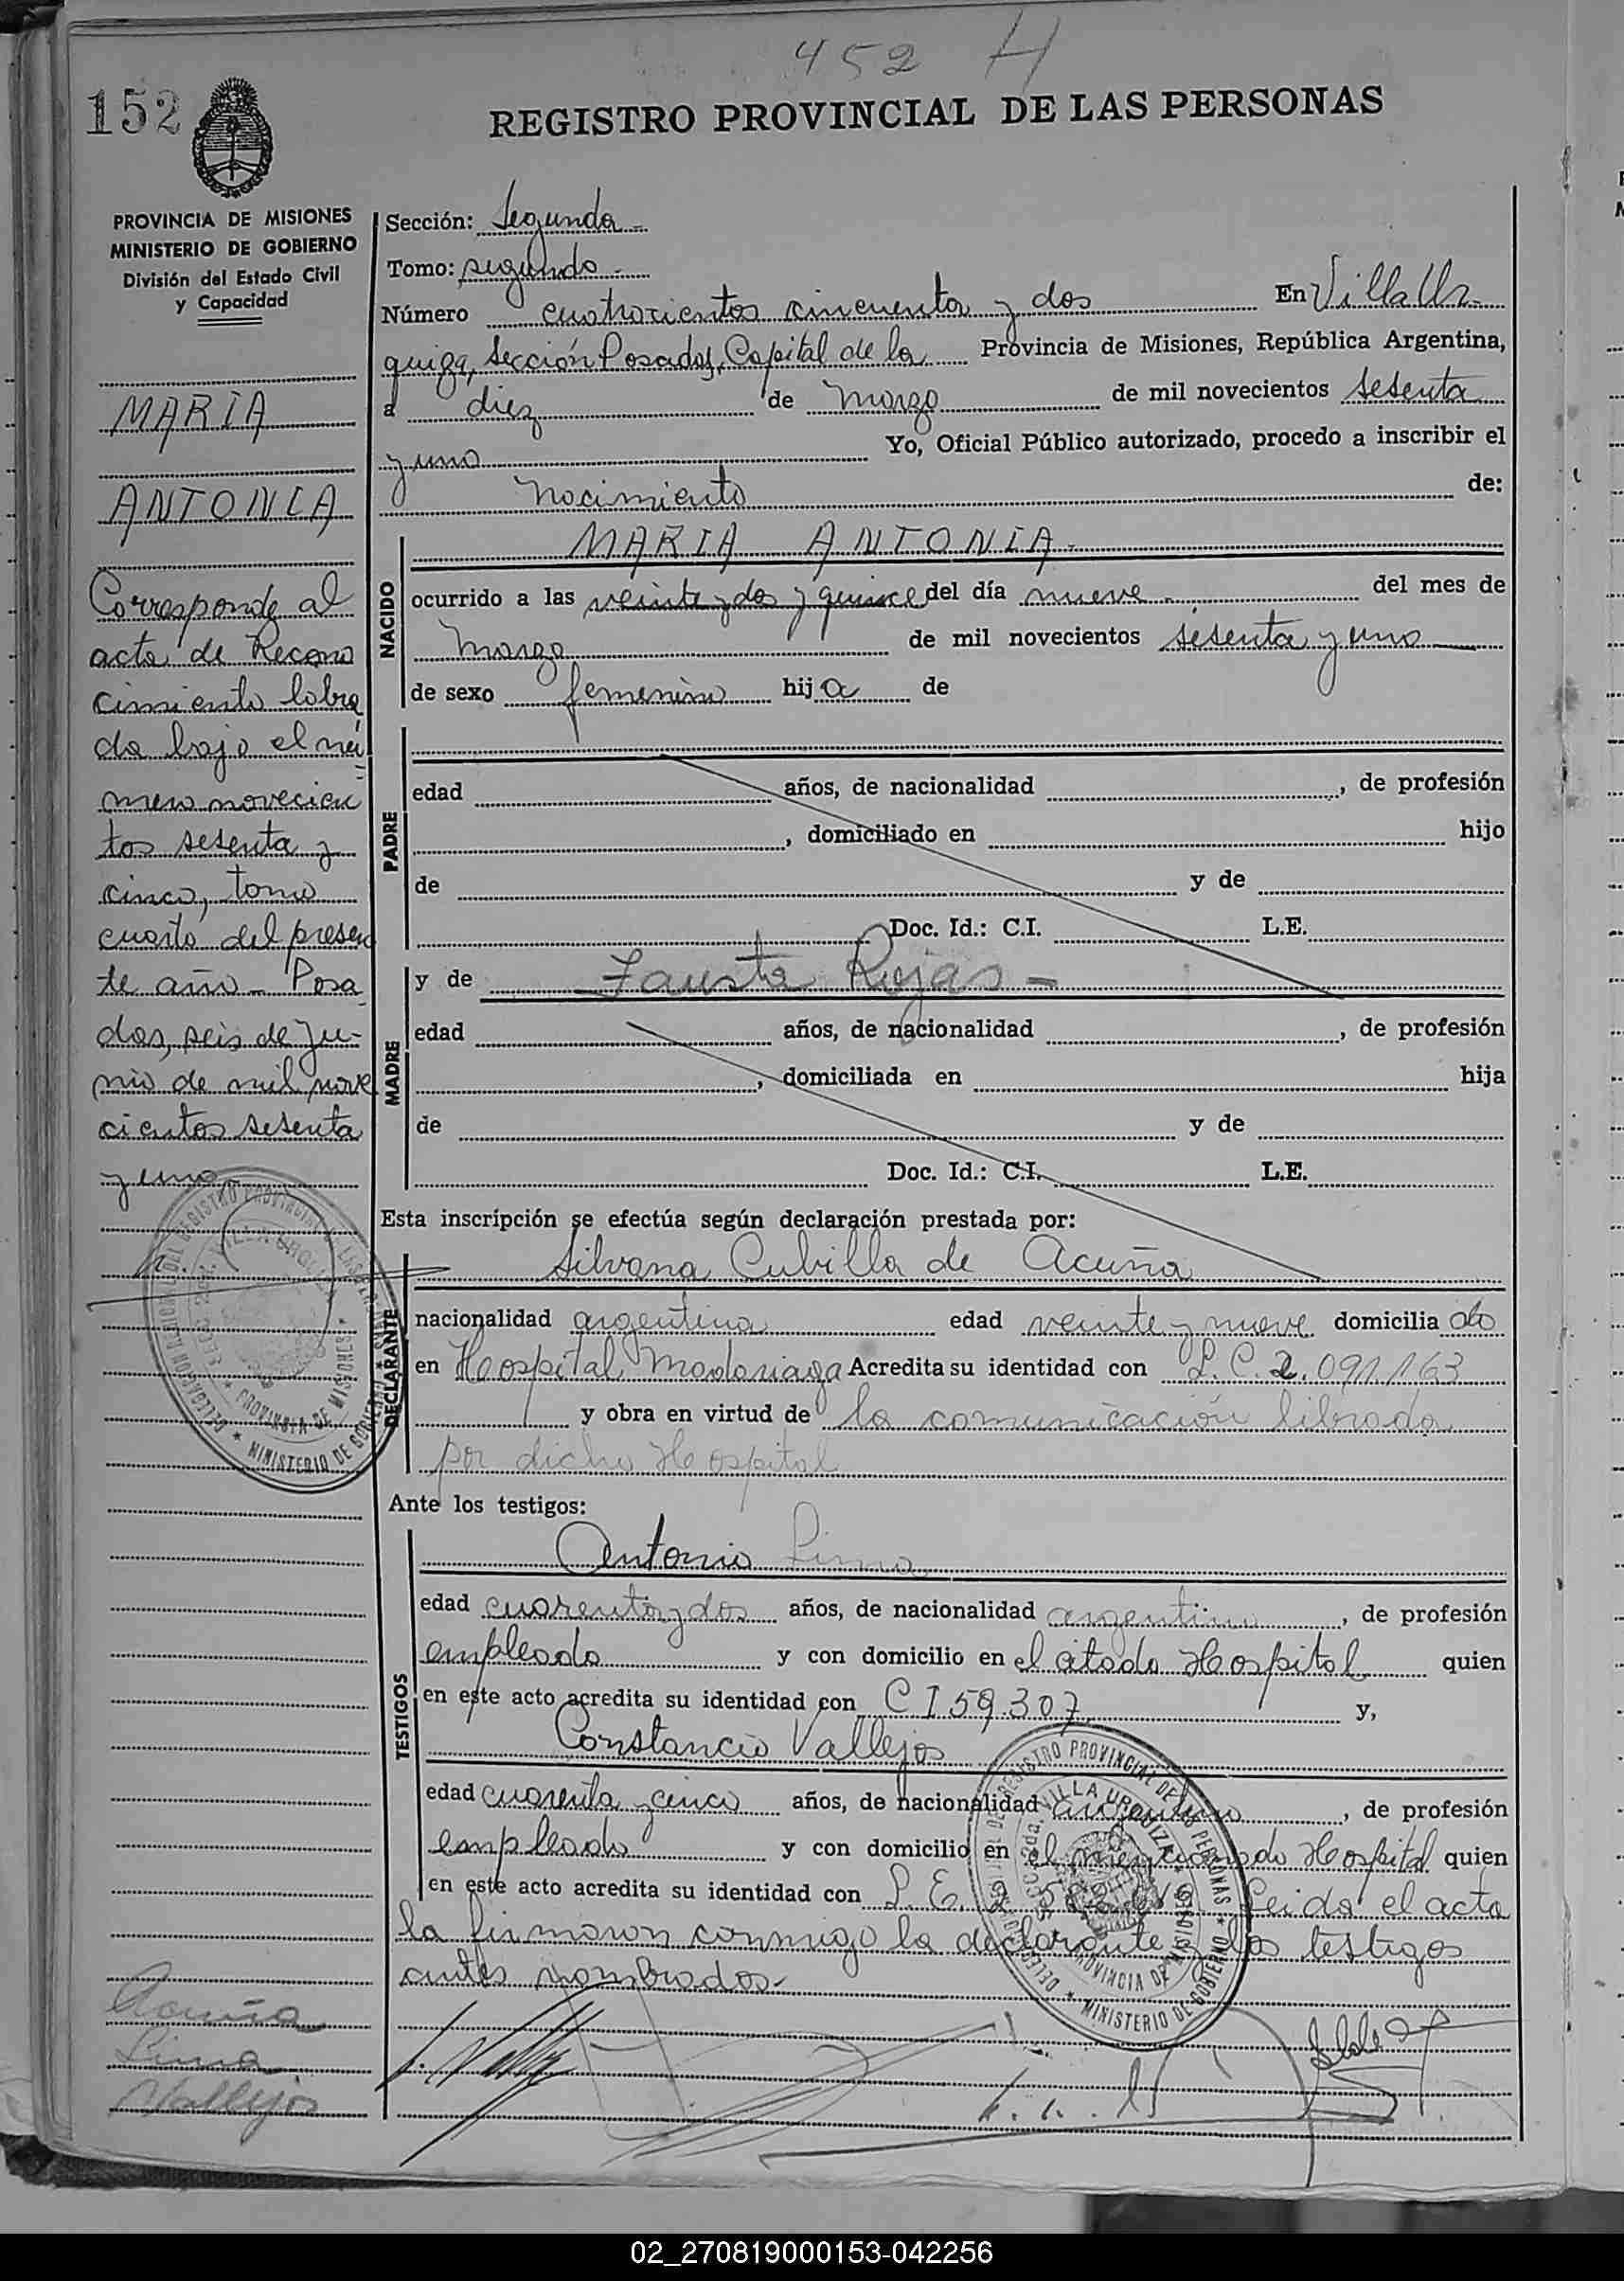 452 H
152
REGISTRO PROVINCIAL DE LAS PERSONAS
PROVINCIA DE MISIONES
MINISTERIO DE GOBIERNO
División del Estado Civil
y Capacidad
MARIA
ANTONIA
Corresponde al
acta de Recono
cimiento labra
da bajo el nú
mero novecien
tos sesenta y
cinco, tomo
cuarto del presen
te año - Posa
das, seis de Ju-
nio de mil nove
cientos sesenta
y uno
Sección: Segunda -
Tomo: segundo -
Número cuatrocientos cincuenta y dos En Villa Ur-
quiza, Sección Posadas, Capital de la Provincia de Misiones, República Argentina,
a diez de marzo de mil novecientos sesenta
y uno Yo, Oficial Público autorizado, procedo a inscribir el
nacimiento de:
MARIA ANTONIA -
NACIDO
ocurrido a las veinte y dos y quince del día nueve - del mes de
marzo de mil novecientos sesenta y uno
de sexo femenino hija de
PADRE
edad años, de nacionalidad , de profesión
, domiciliado en hijo
de y de
Doc. Id.: C.I. L.E.
MADRE
y de Fausta Rojas -
edad años, de nacionalidad , de profesión
, domiciliada en hija
de y de
Doc. Id.: C.I. L.E.
Esta inscripción se efectúa según declaración prestada por:
DECLARANTE
Silvana Cubilla de Acuña
nacionalidad argentina edad veinte y nueve domiciliada
en Hospital Madariaga Acredita su identidad con L.C. 2.091.163
y obra en virtud de la comunicación librada
por dicho Hospital
Ante los testigos:
TESTIGOS
Antonio Lima
edad cuarenta y dos años, de nacionalidad argentino, de profesión
empleado y con domicilio en el citado Hospital quien
en este acto acredita su identidad con C I 59.307 y,
Constancio Vallejos
edad cuarenta y cinco años, de nacionalidad argentino, de profesión
empleado y con domicilio en el mencionado Hospital quien
en este acto acredita su identidad con L.E. Leida el acta
la firmaron conmigo la declarante y los testigos
antes nombrados.-
Acuña
Lima
Vallejos
REGISTRO PROVINCIAL DE LAS PERSONAS
VILLA URQUIZA
PROVINCIA DE MISIONES
MINISTERIO DE GOBIERNO
02_270819000153-042256